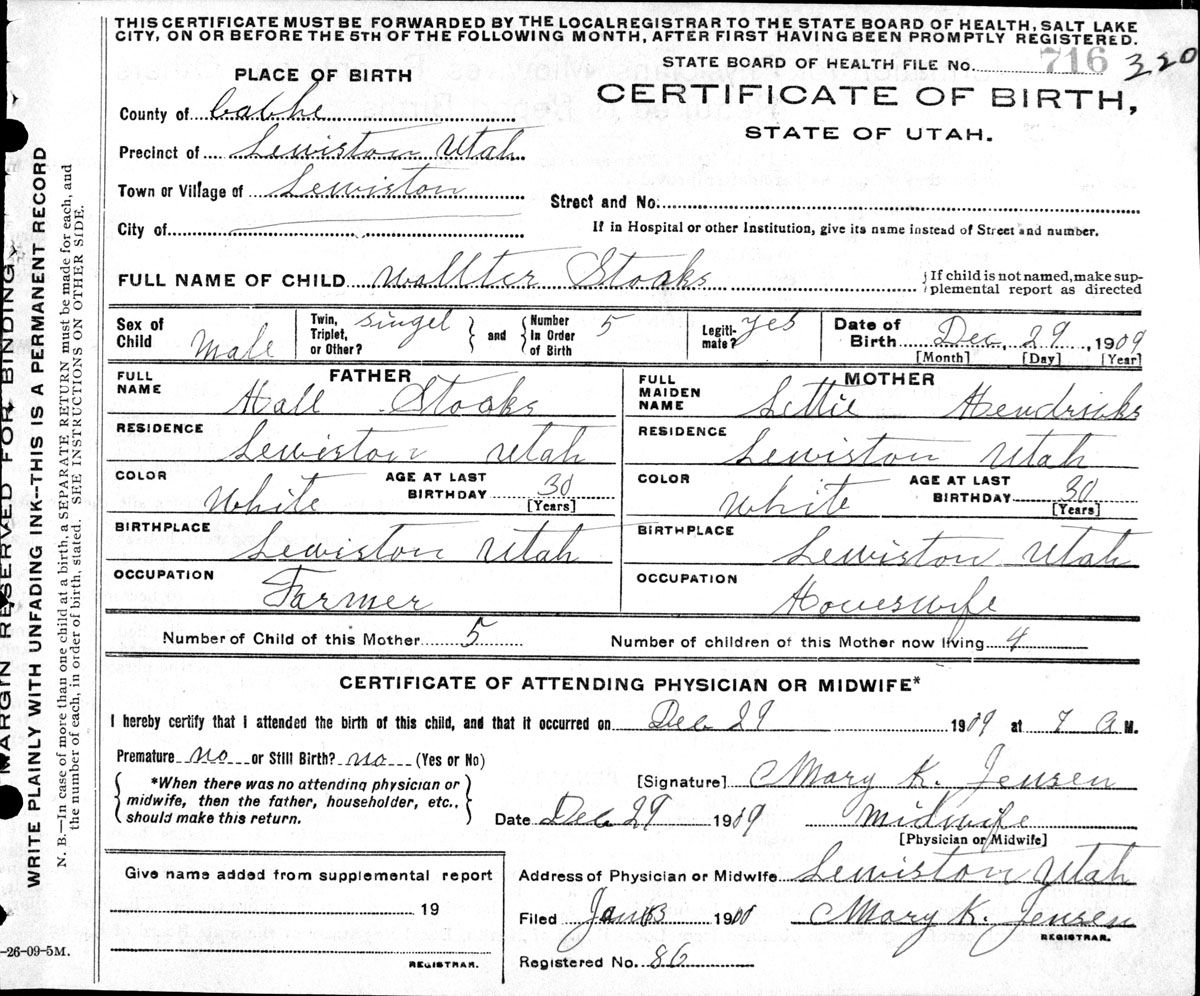 THIS CERTIFICATE MUST BE FORWARDED BY THE LOCAL REGISTRAR TO THE STATE BOARD OF HEALTH, SALT LAKE
CITY, ON OR BEFORE THE 5TH OF THE FOLLOWING MONTH, AFTER FIRST HAVING BEEN PROMPTLY REGISTERED.
STATE BOARD OF HEALTH FILE No. 716 320
PLACE OF BIRTH
CERTIFICATE OF BIRTH,
STATE OF UTAH.
County of Cabhe
Precinct of Lewiston Utah
Town or Village of Lewiston
Street and No.
City of
If in Hospital or other Institution, give its name instead of Street and number.
FULL NAME OF CHILD Wallter Stoaks
If child is not named, make sup-
plemental report as directed
Sex of Child Male
Twin, Triplet, or Other? Singel
and
Number In Order of Birth 5
Legiti-mate? yes
Date of Birth Dec, 29, 1909
[Month] [Day] [Year]
FATHER
FULL NAME Hall Stoaks
RESIDENCE Lewiston Utah
COLOR White AGE AT LAST BIRTHDAY 30
[Years]
BIRTHPLACE Lewiston Utah
OCCUPATION Farmer
MOTHER
FULL MAIDEN NAME Lettie Hendricks
RESIDENCE Lewiston Utah
COLOR White AGE AT LAST BIRTHDAY 30
[Years]
BIRTHPLACE Lewiston Utah
OCCUPATION Houeswife
Number of Child of this Mother 5 Number of children of this Mother now living 4
CERTIFICATE OF ATTENDING PHYSICIAN OR MIDWIFE*
I hereby certify that I attended the birth of this child, and that it occurred on Dec 29 1909 at 7 A M.
Premature no or Still Birth? no (Yes or No)
*When there was no attending physician or
midwife, then the father, householder, etc.,
should make this return.
[Signature] Mary K. Jensen
Date Dec 29 1909 midwife
[Physician or Midwife]
Give name added from supplemental report
19
REGISTRAR.
Address of Physician or Midwife Lewiston Utah
Filed Jan 19 Mary K. Jensen
REGISTRAR.
Registered No. 86
-26-09-5M.
MARGIN RESERVED FOR BINDING
WRITE PLAINLY WITH UNFADING INK--THIS IS A PERMANENT RECORD
N. B.—In case of more than one child at a birth, a SEPARATE RETURN must be made for each, and
the number of each, in order of birth, stated. SEE INSTRUCTIONS ON OTHER SIDE.